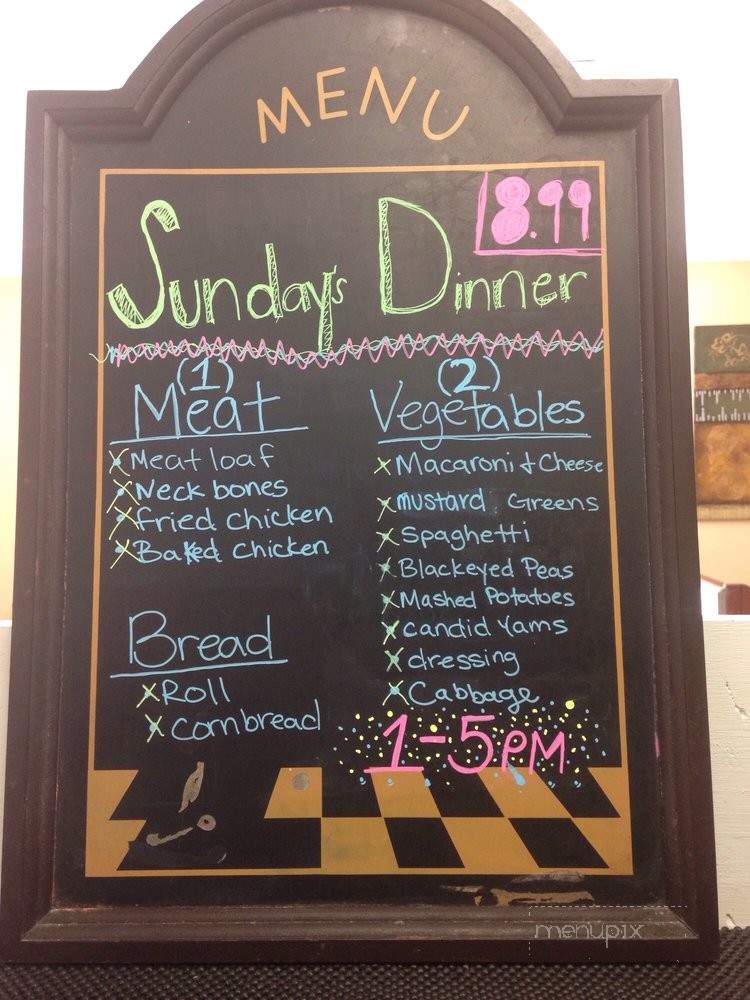 MENU
8.99
Sunday's Dinner
(1)
Meat
Meat loaf
Neck bones
fried chicken
Baked chicken
Bread
Roll
cornbread
(2)
Vegetables
Macaroni & Cheese
mustard Greens
Spaghetti
Blackeyed Peas
Mashed Potatoes
candid Yams
dressing
Cabbage
1-5PM
menupix